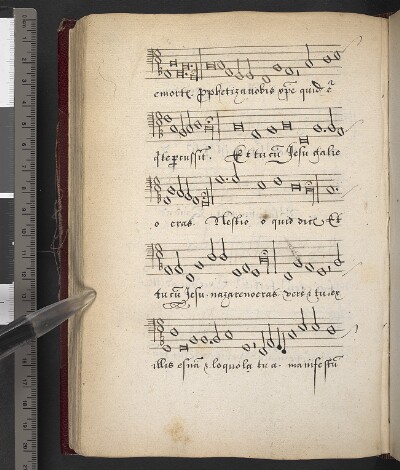 e morte. prophetiza nobis xpe quid ē
q te percussit. Et tu cū Jesu galile
o eras. Nestio o quid dicit Et
tu cū Jesu nazareno eras vere & tu ex
illis es nā & loquela tua manifestū